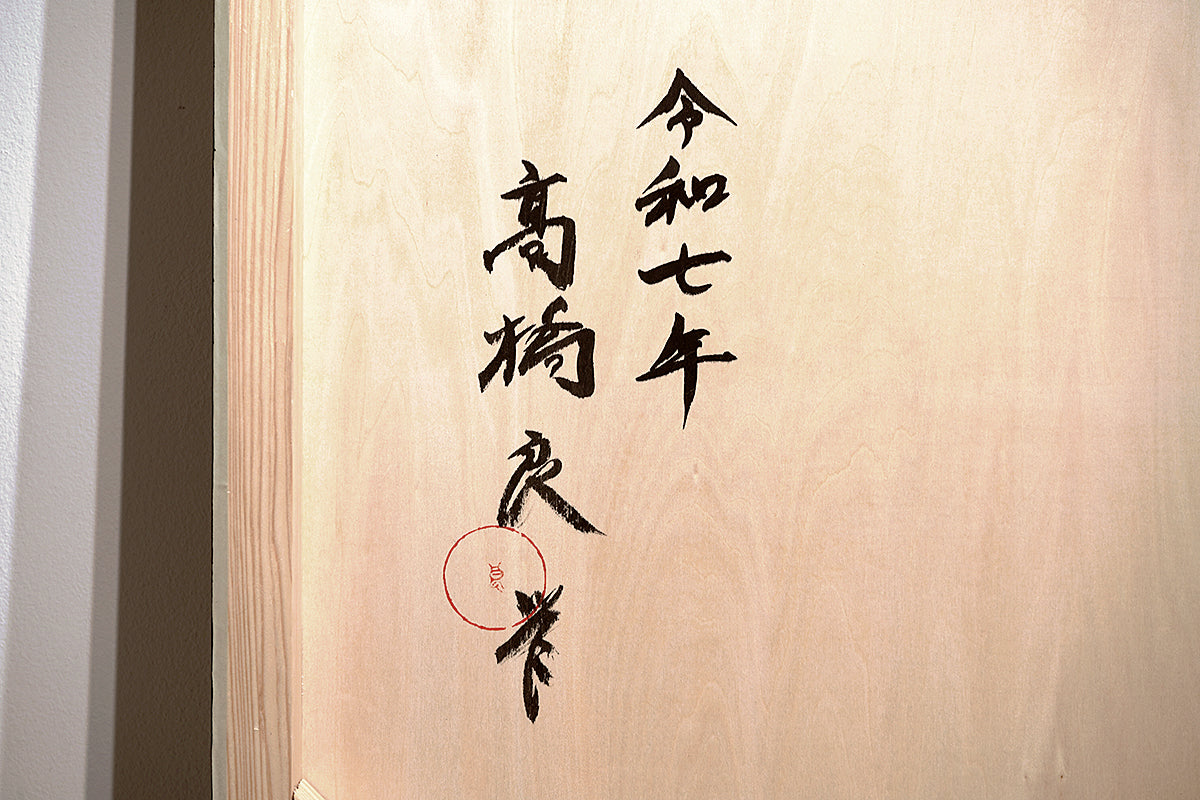 令和七年
高橋良
良